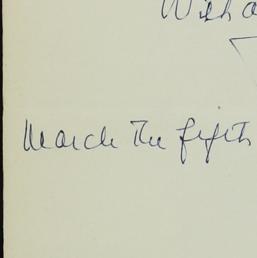 With a
March The fifth